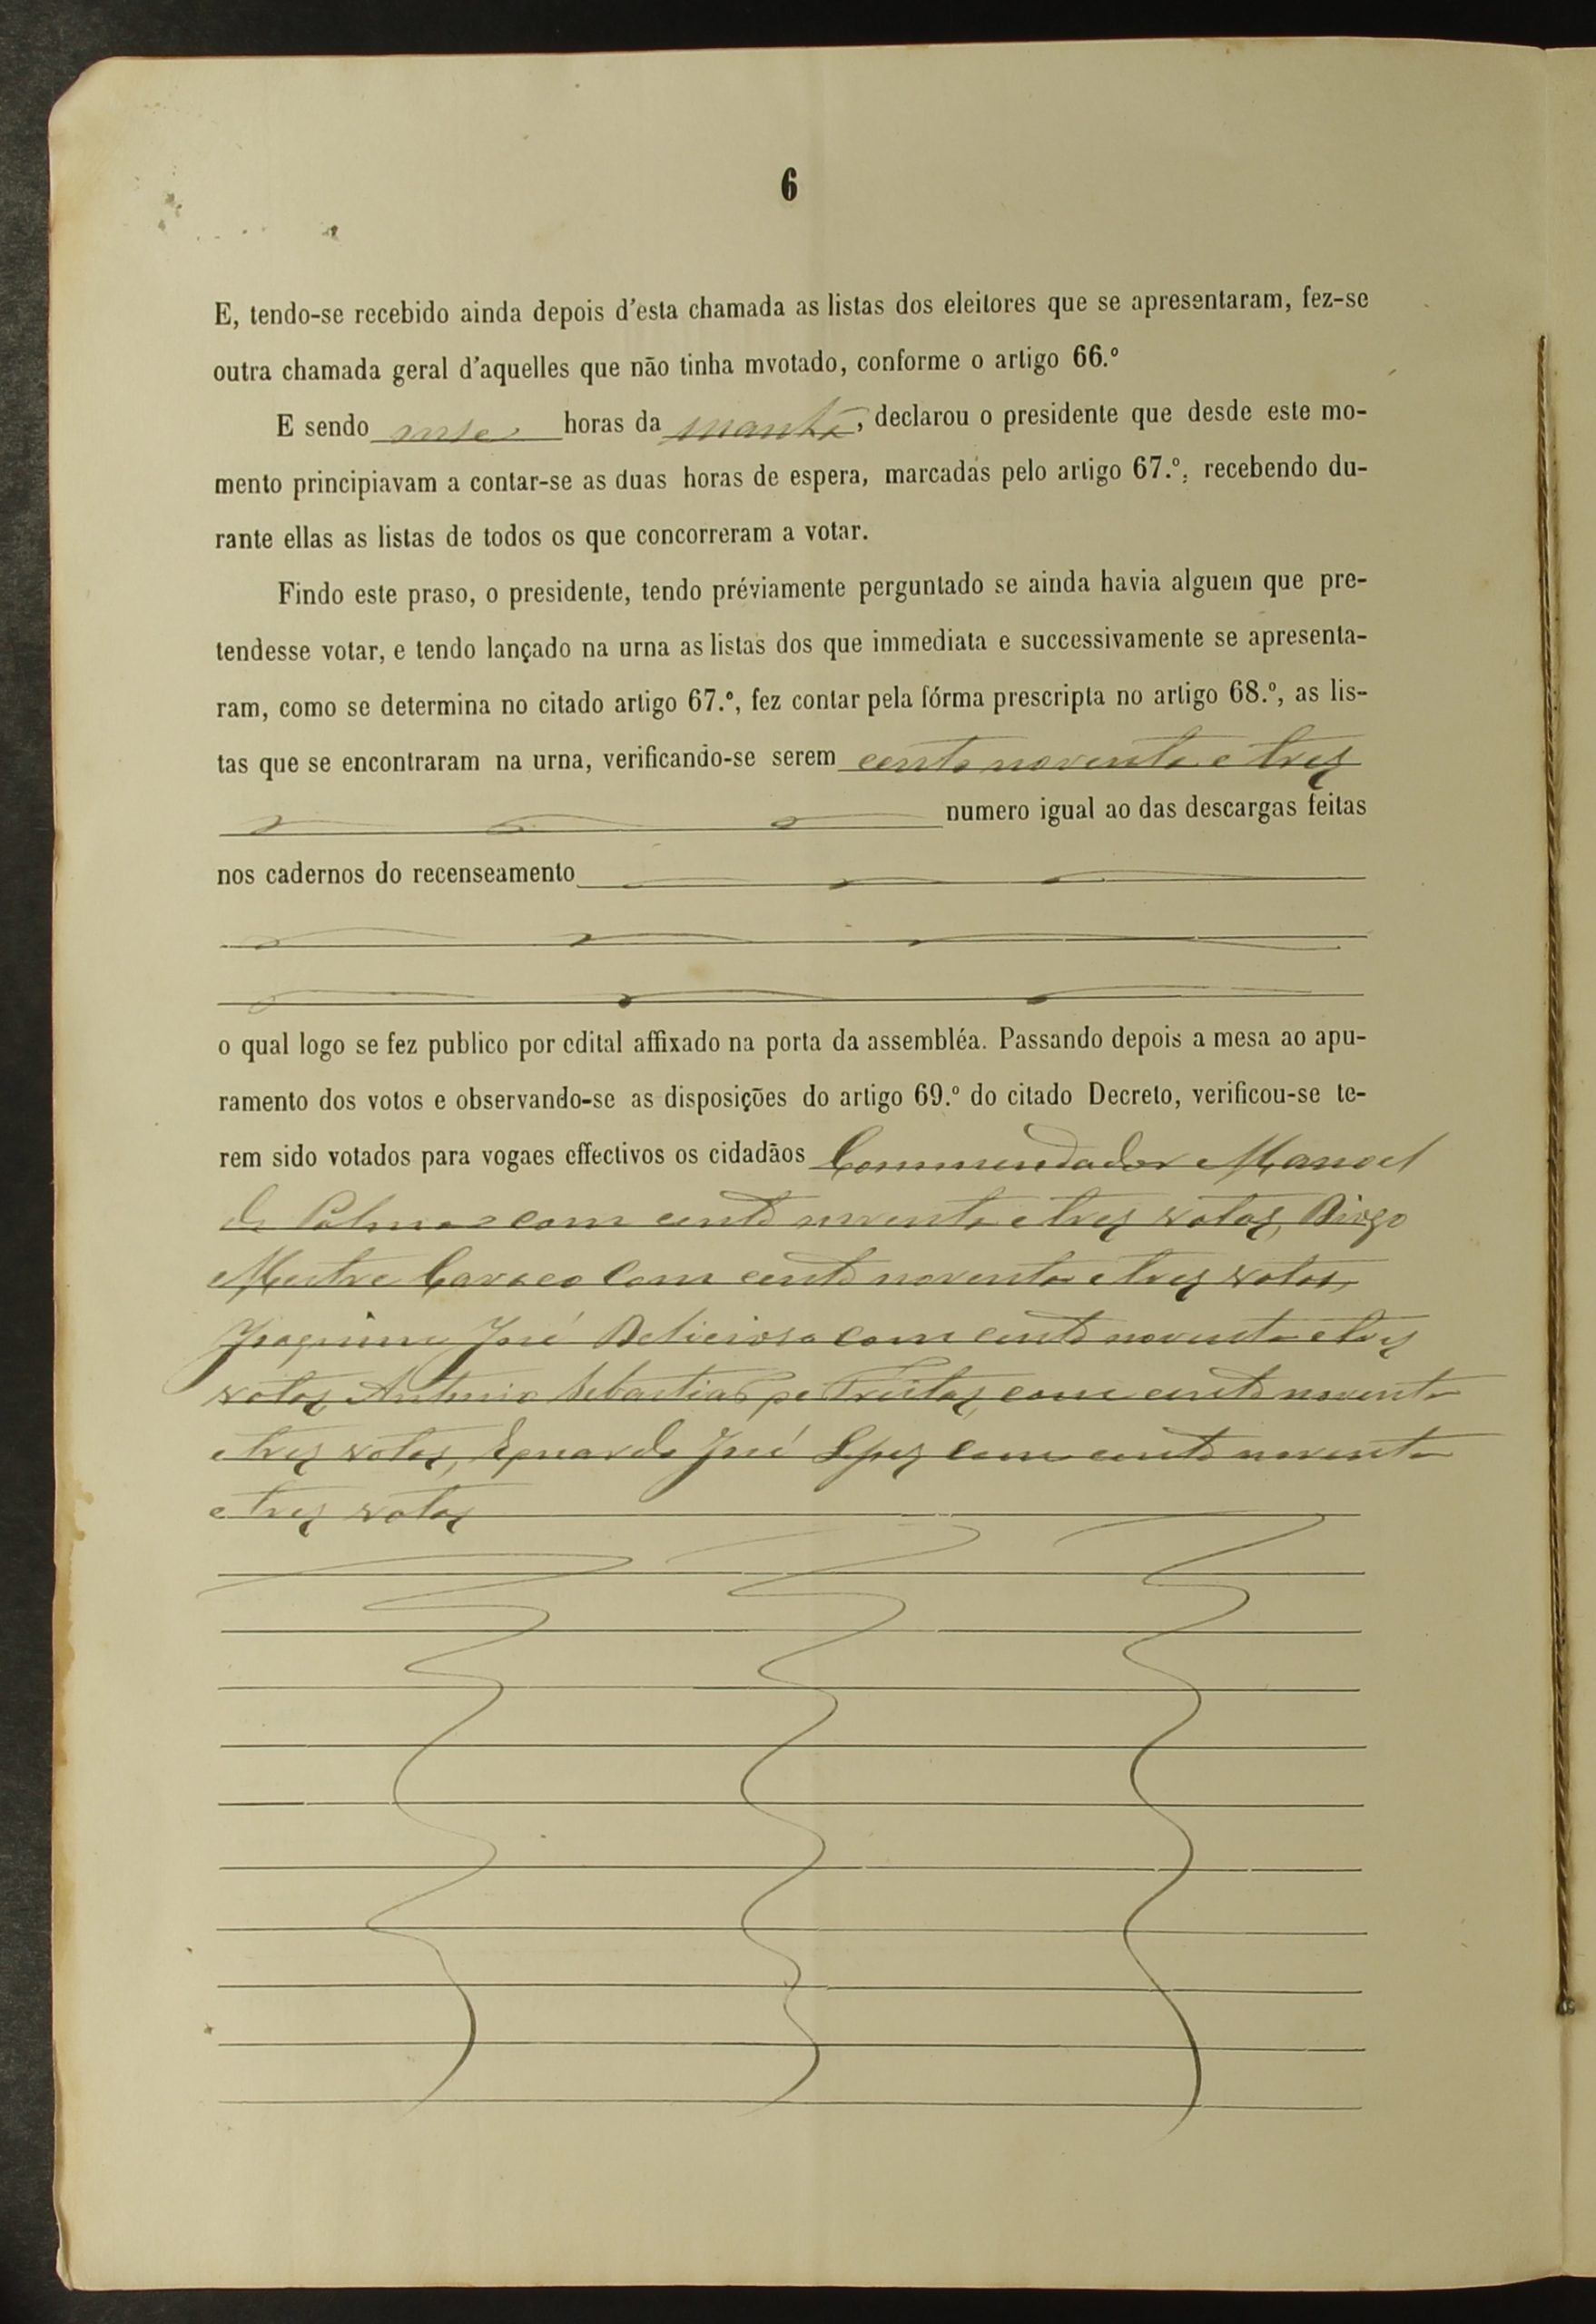 6
E, tendo-se recebido ainda depois d'esta chamada as listas dos eleitores que se apresentaram, fez-se
outra chamada geral d'aquelles que não tinha mvotado, conforme o artigo 66.º
E sendo onse horas da manhã, declarou o presidente que desde este mo-
mento principiavam a contar-se as duas horas de espera, marcadas pelo artigo 67.º, recebendo du-
rante ellas as listas de todos os que concorreram a votar.
Findo este praso, o presidente, tendo préviamente perguntado se ainda havia alguem que pre-
tendesse votar, e tendo lançado na urna as listas dos que immediata e successivamente se apresenta-
ram, como se determina no citado artigo 67.º, fez contar pela fórma prescripta no artigo 68.º, as lis-
tas que se encontraram na urna, verificando-se serem cento noventa e tres
numero igual ao das descargas feitas
nos cadernos do recenseamento
o qual logo se fez publico por edital affixado na porta da assembléa. Passando depois a mesa ao apu-
ramento dos votos e observando-se as disposições do artigo 69.º do citado Decreto, verificou-se te-
rem sido votados para vogaes effectivos os cidadãos Commendador Manoel
de Palma com cento noventa e tres votos, Diogo
Mestre com cento noventa e tres votos,
Joaquim José com cento noventa e tres
votos Antonio Sebastião de Freitas, com cento noventa
e tres votos, Eduardo José Lopes com cento noventa
e tres votos